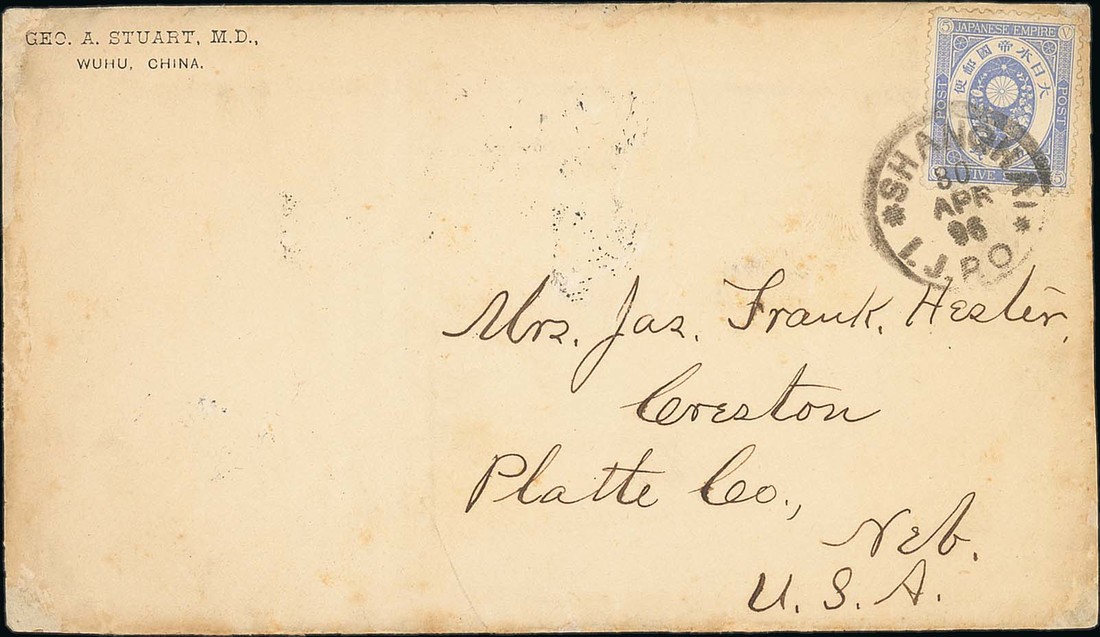 GEO. A. STUART, M.D.,
WUHU, CHINA.
5 JAPANESE EMPIRE V
大日本帝國郵便
POST
POST
5
SHANGHAI
30
APR
96
I.J.P.O
Mrs. Jas. Frank. Hester,
Creston
Platte Co.,
Neb.
U. S. A.